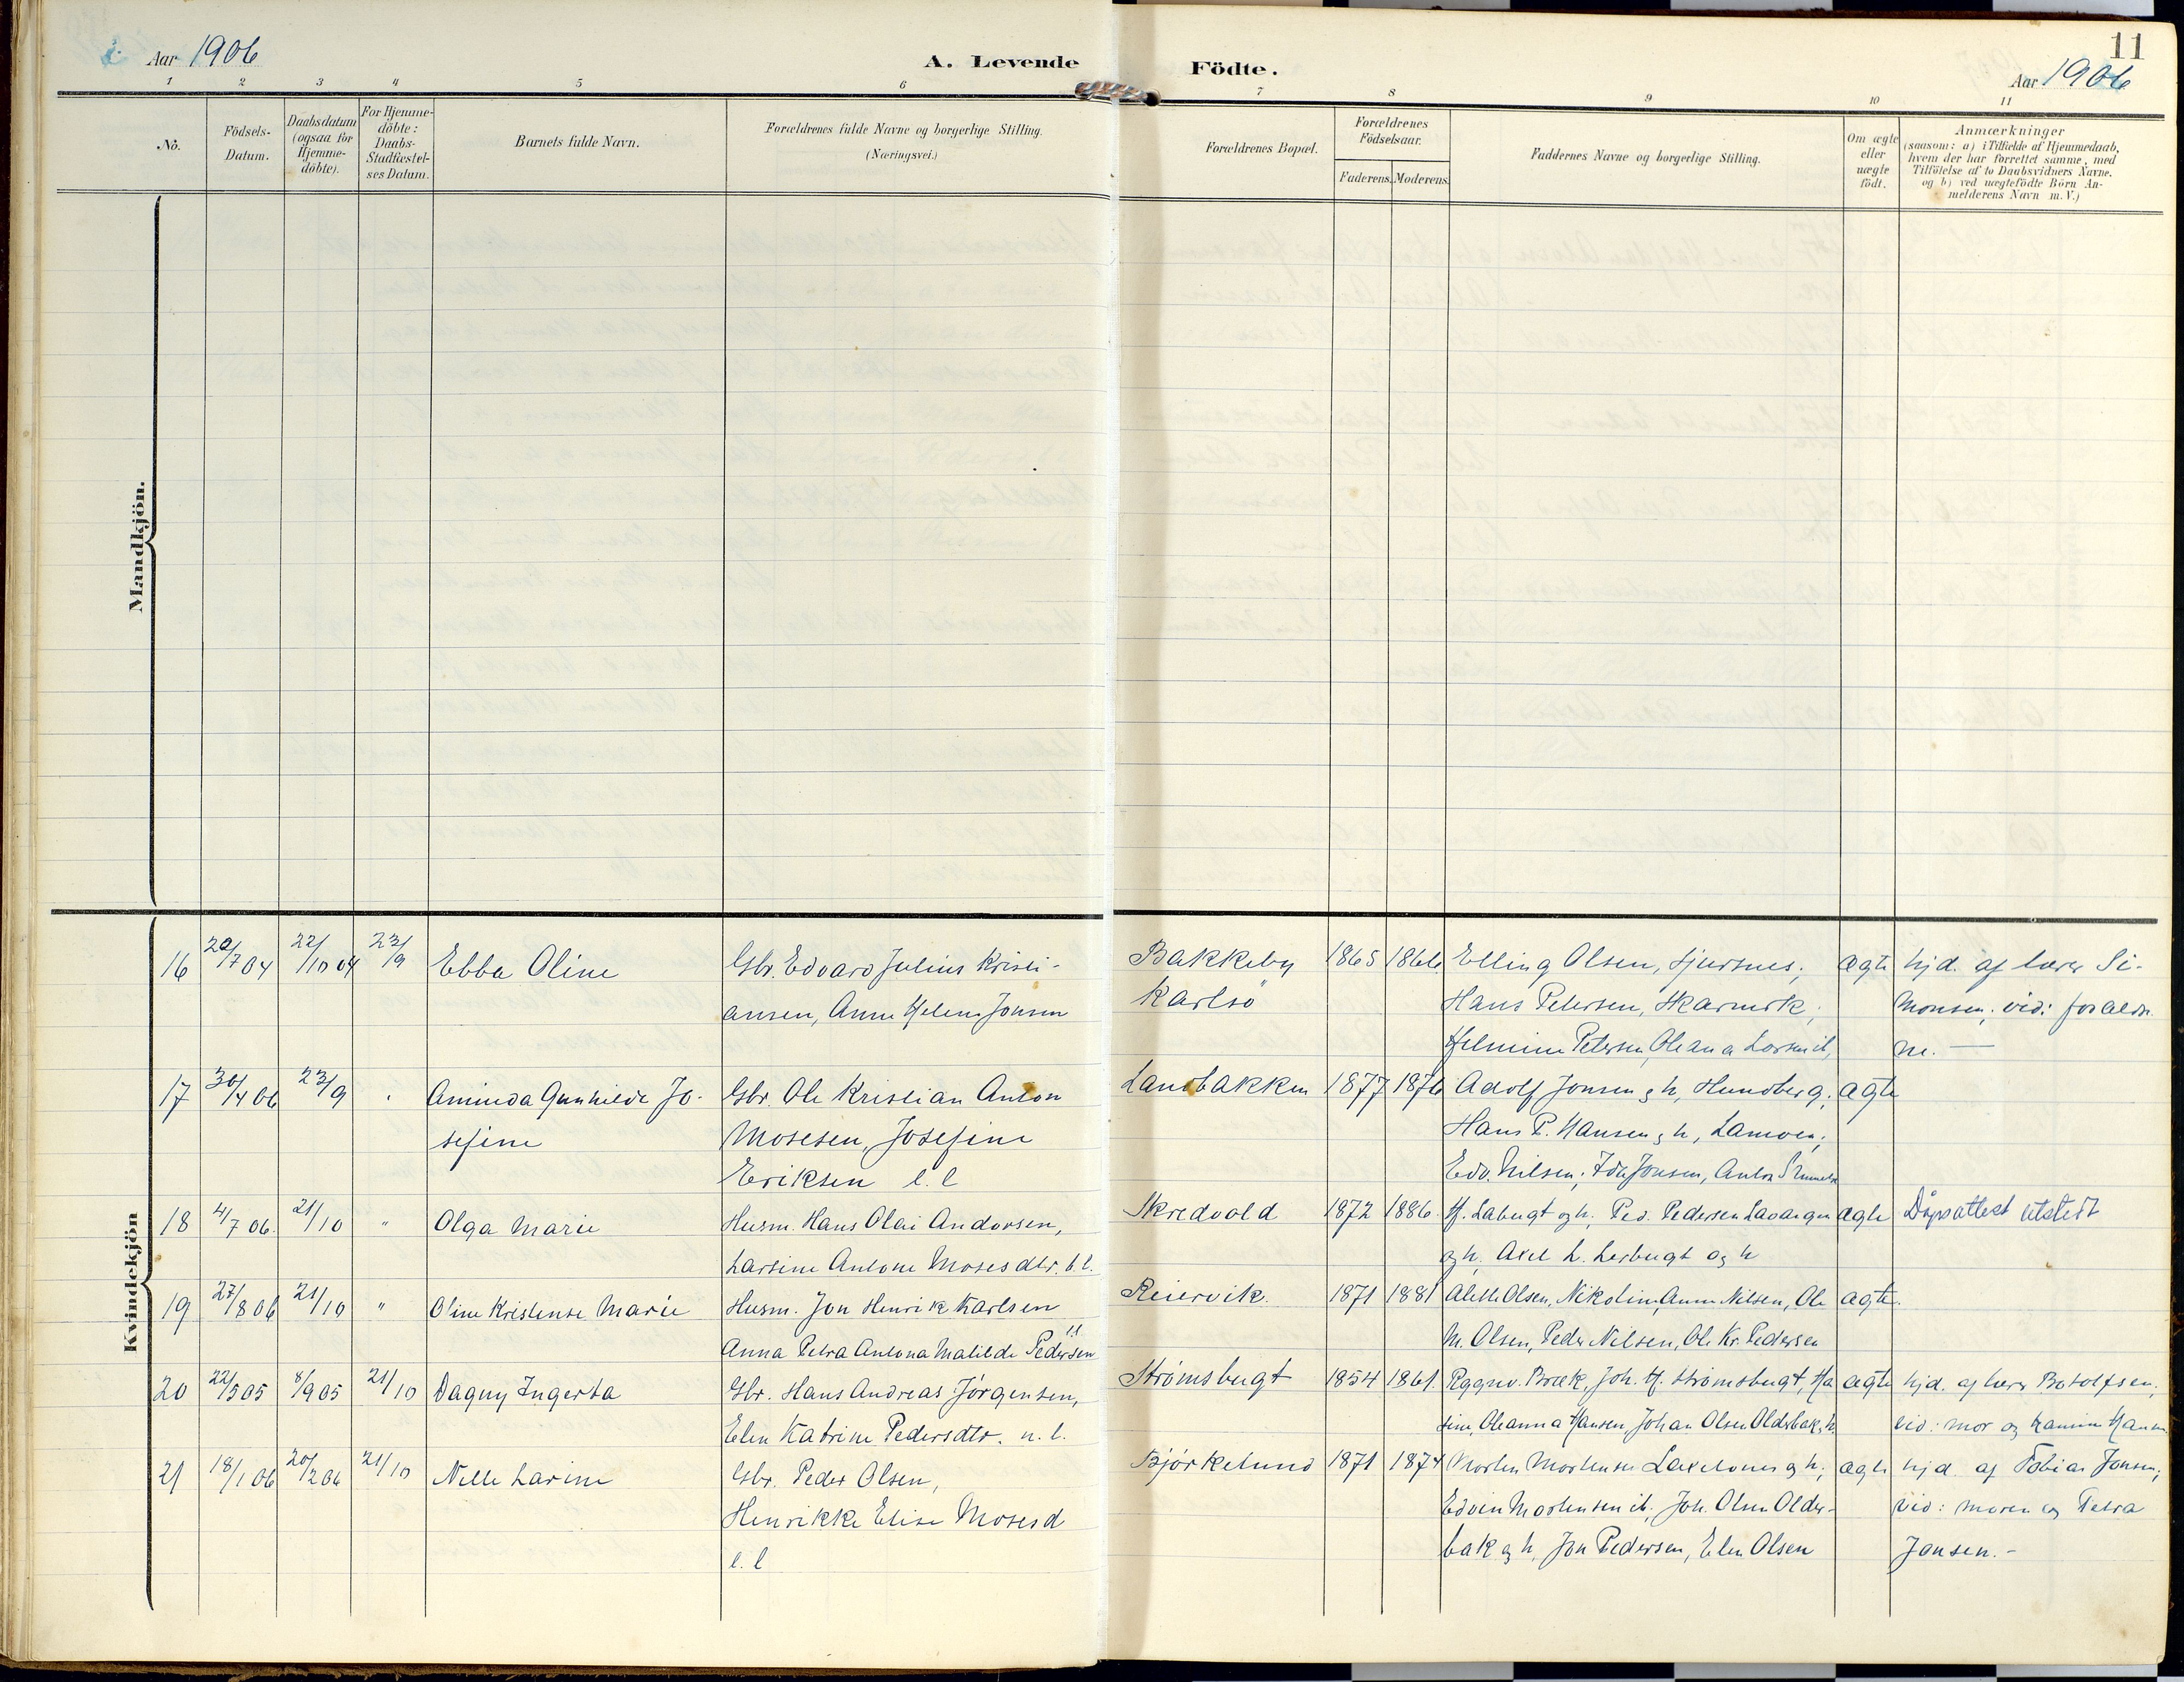 11
Aar 1906 A. Levende Födte. Aar 1906
1 2 3 4 5 6 7 8 9 10 11
No. Födsels-Datum. Daabsdatum (ogsaa for Hjemme-döbte). For Hjemme-döbte: Daabs-Stadfæstel-ses Datum. Barnets fulde Navn. Forældrenes fulde Navne og borgerlige Stilling. (Næringsvei.) Forældrenes Bopæl. Forældrenes Födselsaar. Faderens. Moderens. Faddernes Navne og borgerlige Stilling. Om ægte eller uægte födt. Anmærkninger (saasom: a) i Tilfælde af Hjemmedaab, hvem der har forrettet samme, med Tilföielse af to Daabsvidners Navne. og b) ved uægtefödte Börn An-melderens Navn m.V.)
Mandkjön.
Kvindekjön
16 20/7 04 22/10 04 23/9 Ebba Oline Gbr. Edvard Julius Kristi- Bakkeby 1865 1866 Elling Olsen, Hjursnes; ægte hjd. af lærer Si-
ansen, Anne Helene Jonsen Karlsö Hans Petersen, Skarmrk; monsen; vid: foraldr.
Helmine Petersen, Oleana Larsen ib, ne. —
17 30/4 06 23/9 Aminda Gunhilde Jo- Gbr. Ole Kristian Anton Landbakken 1877 1876 Adolf Jonsen g h, Hundberg; ægte
sefine Mosesen, Josefine Hans P. Hansen g h, Lamoen;
Eriksen l. l Edv. Nilsen; Ida Jonsen, Anton
18 4/7 06. 21/10 " Olga Marie Husm. Hans Olai Andorsen, Skredvold 1872 1886. H. Labugt og h, Ped. Pedersen Lavangen ægte Dåpsattest utstedt
Larsine Antone Mosesdtr. l. l. og h, Axel L. Lerbugt og h
19 27/8 06 21/10 " Oline Kristense Marie Husm. Jon Henrik Karlsen Reiervik. 1871 1881 Alette Olsen, Nikoline, Anne Nilsen, Ole ægte.
Anna Petra Antona Matilde Pedersen l.l M. Olsen, Peder Nilsen, Ol. Kr. Pedersen
20 22/5 05 8/9 05 21/10 Dagny Ingerta Gbr. Hans Andreas Jørgensen, Strømsbugt 1854 1861. Rggsv. Bræk, Joh. H. Strømsbugt, Ha ægte hjd. af lærer Botolfsen;
Elen Katrine Pedersdtr. n. l. sine, Oleanna Hansen, Johan Olsen Olderbak g h. vid: mor og
21 18/1 06 20/2 06 21/10 Nelle Larine Gbr. Peder Olsen, Bjørkelund 1871 1874 Morten Mortensen g h; ægte hjd. af Tobias Jonsen;
Henrikke Elise Mosesd Edvin Mortensen ib, Joh. Olsen Older- vid: moren og Petra
l. l bak g h, Jon Pedersen, Elen Olsen Jonsen. -